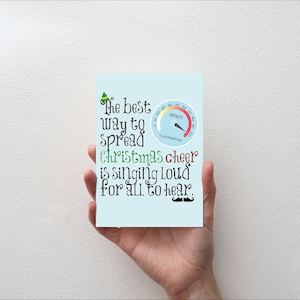 The best
way to
spread
Christmas cheer
is singing loud
for all to hear.
SPIRIT